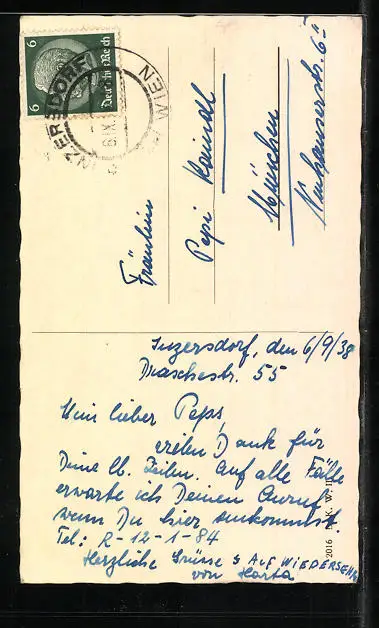 6 6
Deutsches Reich
INZERSDORF
WIEN
6.IX.
Fräulein
Pepi Haindl
München
Neuhauserstr. 6
Inzersdorf, den 6/9/38
Draschestr. 55
Mein lieber Pepi,
vielen Dank für
Deine lb. Zeilen. Auf alle Fälle
erwarte ich Deinen Anruf
wenn Du hier ankommst.
Tel: R-12-1-84
Herzliche Grüsse & AUF WIEDERSEHN
von Herta
2016